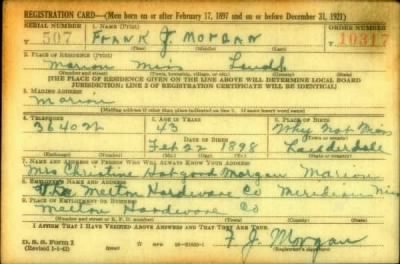 REGISTRATION CARD—(Men born on or after February 17, 1897 and on or before December 31, 1921)
SERIAL NUMBER 1. NAME (Print) ORDER NUMBER
T 507 FRANK J. MORGAN 10317
(First) (Middle) (Last)
2. PLACE OF RESIDENCE (Print)
Marion Miss Laudd
(Number and street) (Town, township, village, or city) (County) (State)
[THE PLACE OF RESIDENCE GIVEN ON THE LINE ABOVE WILL DETERMINE LOCAL BOARD
JURISDICTION; LINE 2 OF REGISTRATION CERTIFICATE WILL BE IDENTICAL]
3. MAILING ADDRESS
Marion
(Mailing address if other than place indicated on line 2. If same insert word same)
4. TELEPHONE 5. AGE IN YEARS 6. PLACE OF BIRTH
36402W 43 Why Not Miss
DATE OF BIRTH (Town or county)
Feb 22 1898 Lauderdale
(Exchange) (Number) (Mo.) (Day) (Yr.) (State or country)
7. NAME AND ADDRESS OF PERSON WHO WILL ALWAYS KNOW YOUR ADDRESS
Mrs Christine Hobgood Morgan Marion
8. EMPLOYER'S NAME AND ADDRESS
The Melton Hardware Co Meridian Miss
9. PLACE OF EMPLOYMENT OR BUSINESS
Melton Hardware Co
(Number and street or R. F. D. number) (Town) (County) (State)
I AFFIRM THAT I HAVE VERIFIED ABOVE ANSWERS AND THAT THEY ARE TRUE.
D. S. S. Form 1
(Revised 1-1-42) (over)
F J. Morgan